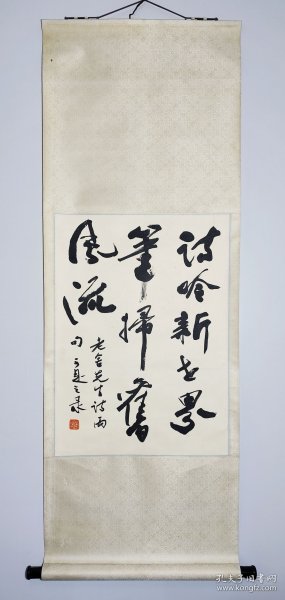 詩吟新世界
筆掃舊
風流
老舍先生詩兩
句
孔夫子旧书网
www.kongfz.com